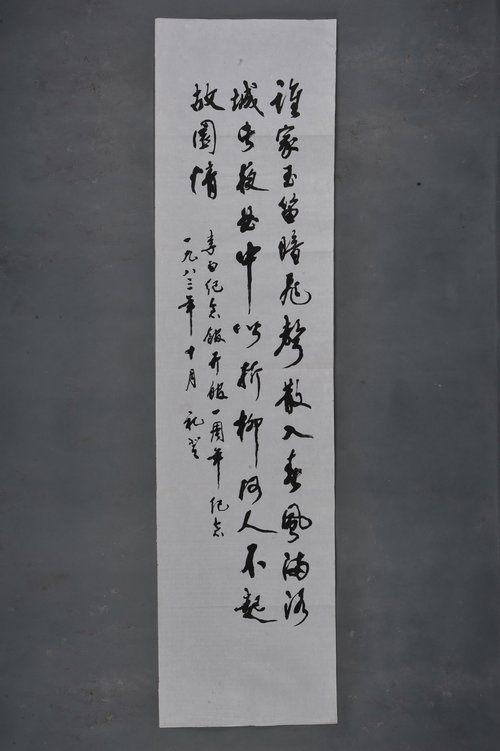 谁家玉笛暗飛聲散入春風满洛
城此夜曲中闻折柳何人不起
故園情
李白纪念馆开馆一周年纪念
一九八三年十月